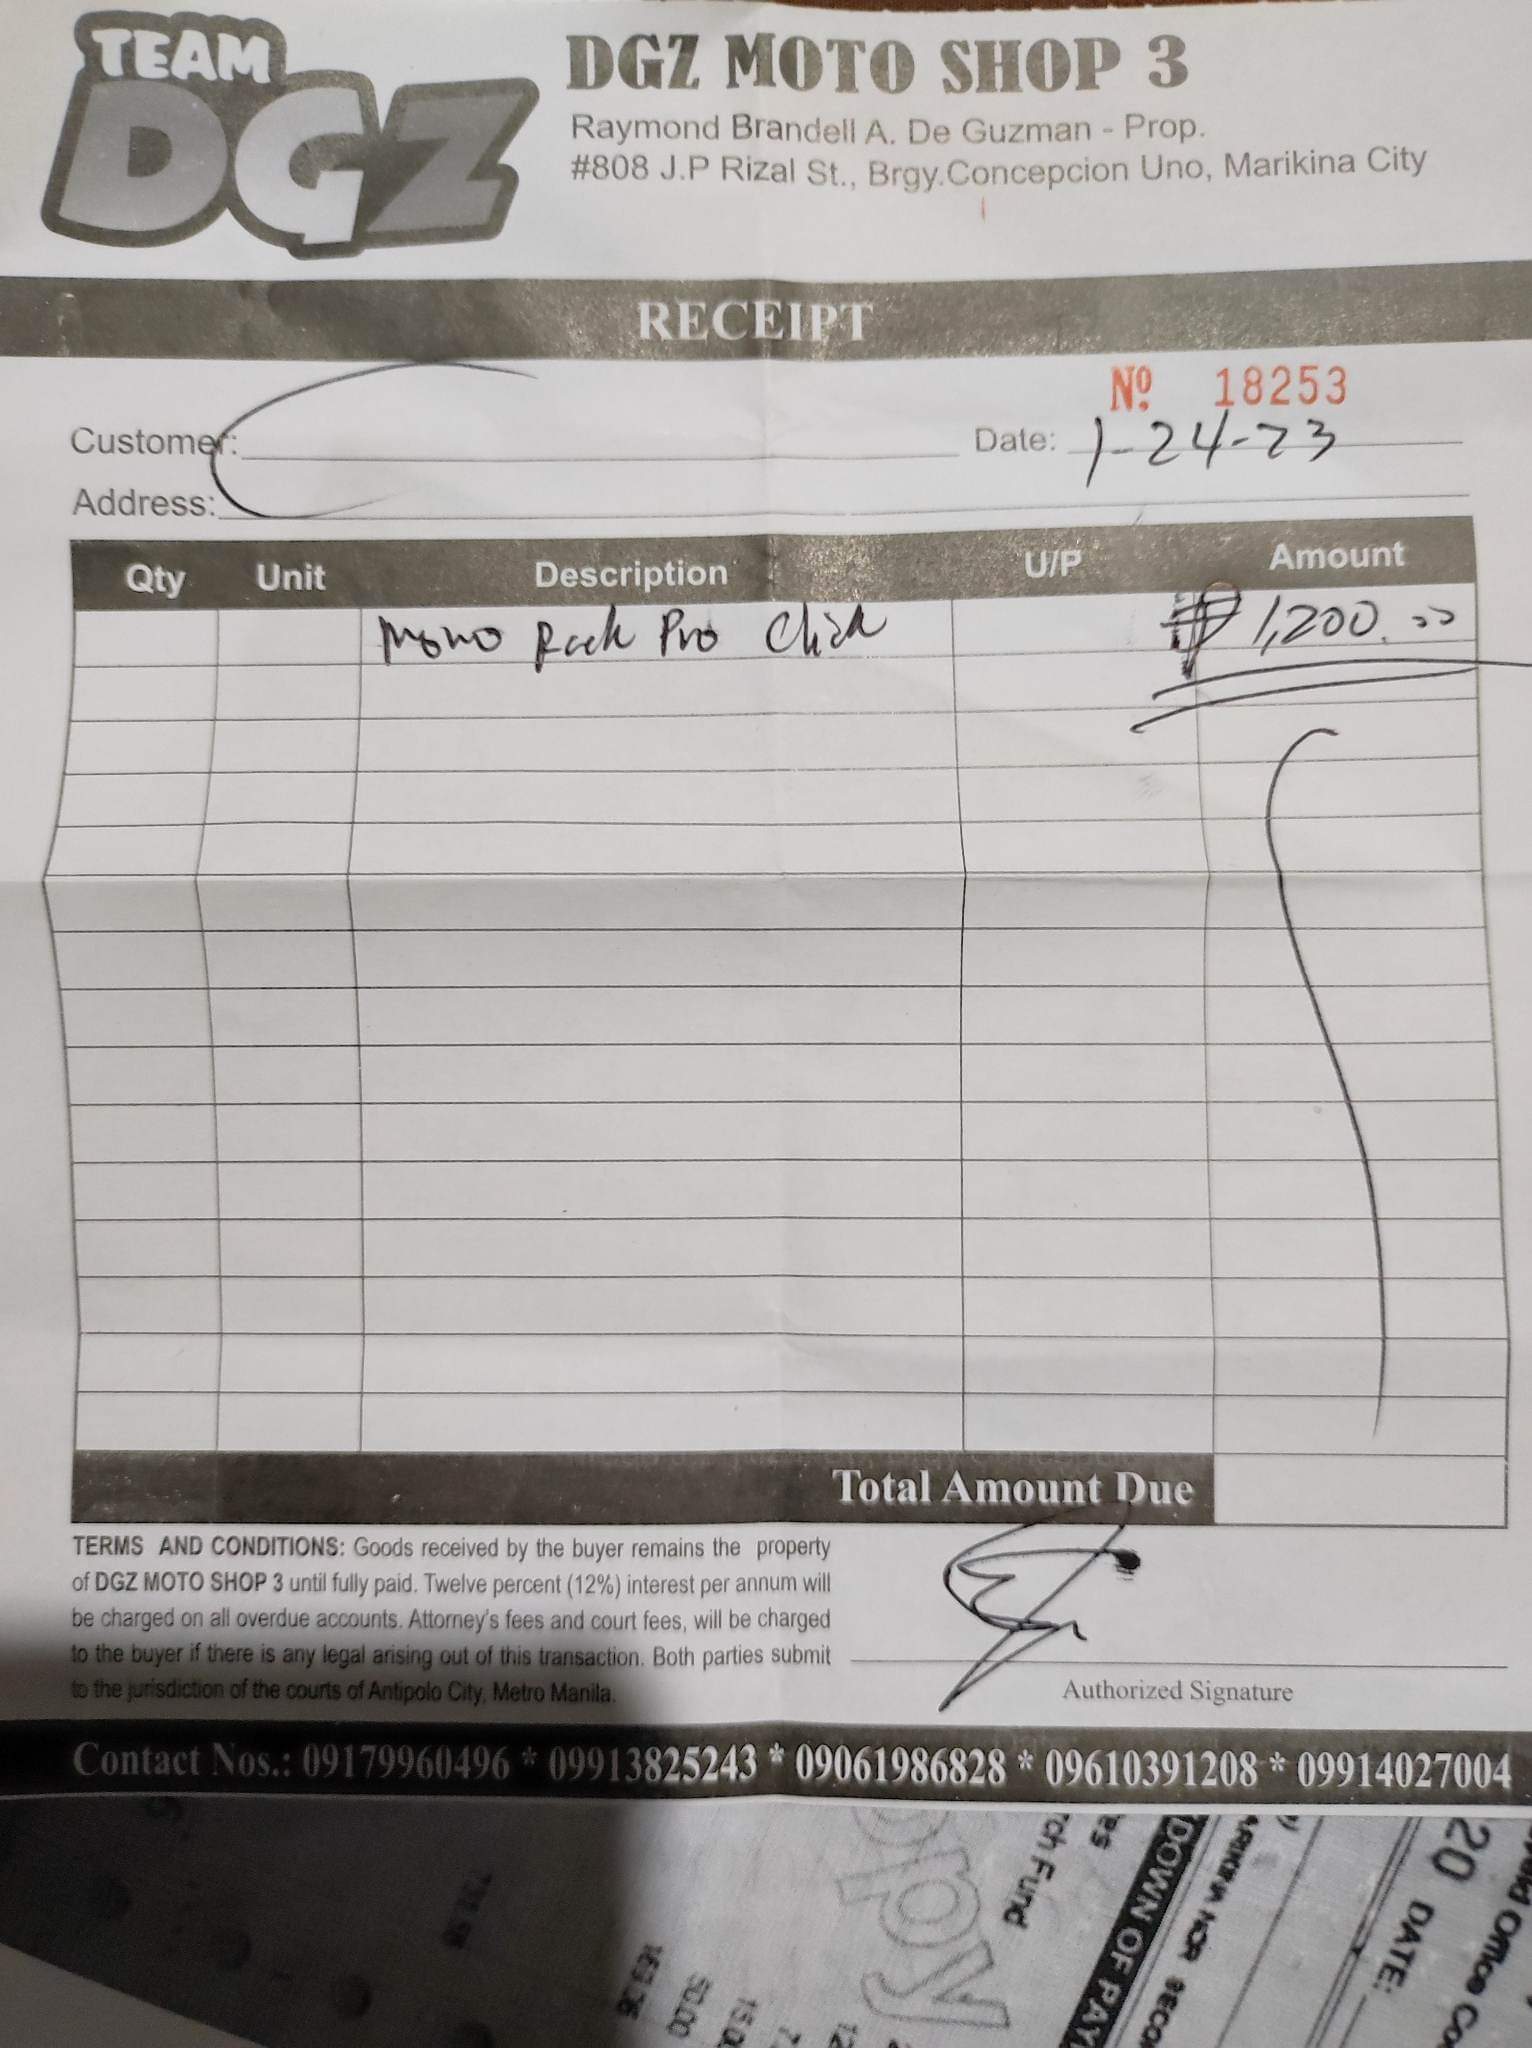 TEAM
DGZ
DGZ MOTO SHOP 3
Raymond Brandell A. De Guzman - Prop.
#808 J.P Rizal St., Brgy.Concepcion Uno, Marikina City
RECEIPT
Nº 18253
Customer: Date: 1-24-23
Address:
Qty Unit Description U/P Amount
Mono Rack Pro Click ₱ 1,200.00
Total Amount Due
TERMS AND CONDITIONS: Goods received by the buyer remains the property
of DGZ MOTO SHOP 3 until fully paid. Twelve percent (12%) interest per annum will
be charged on all overdue accounts. Attorney's fees and court fees, will be charged
to the buyer if there is any legal arising out of this transaction. Both parties submit
to the jurisdiction of the courts of Antipolo City, Metro Manila.
Authorized Signature
Contact Nos.: 09179960496 * 09913825243 * 09061986828 * 09610391208 * 09914027004
Fund
DOWN OF PAY
20 DATE:
50.00